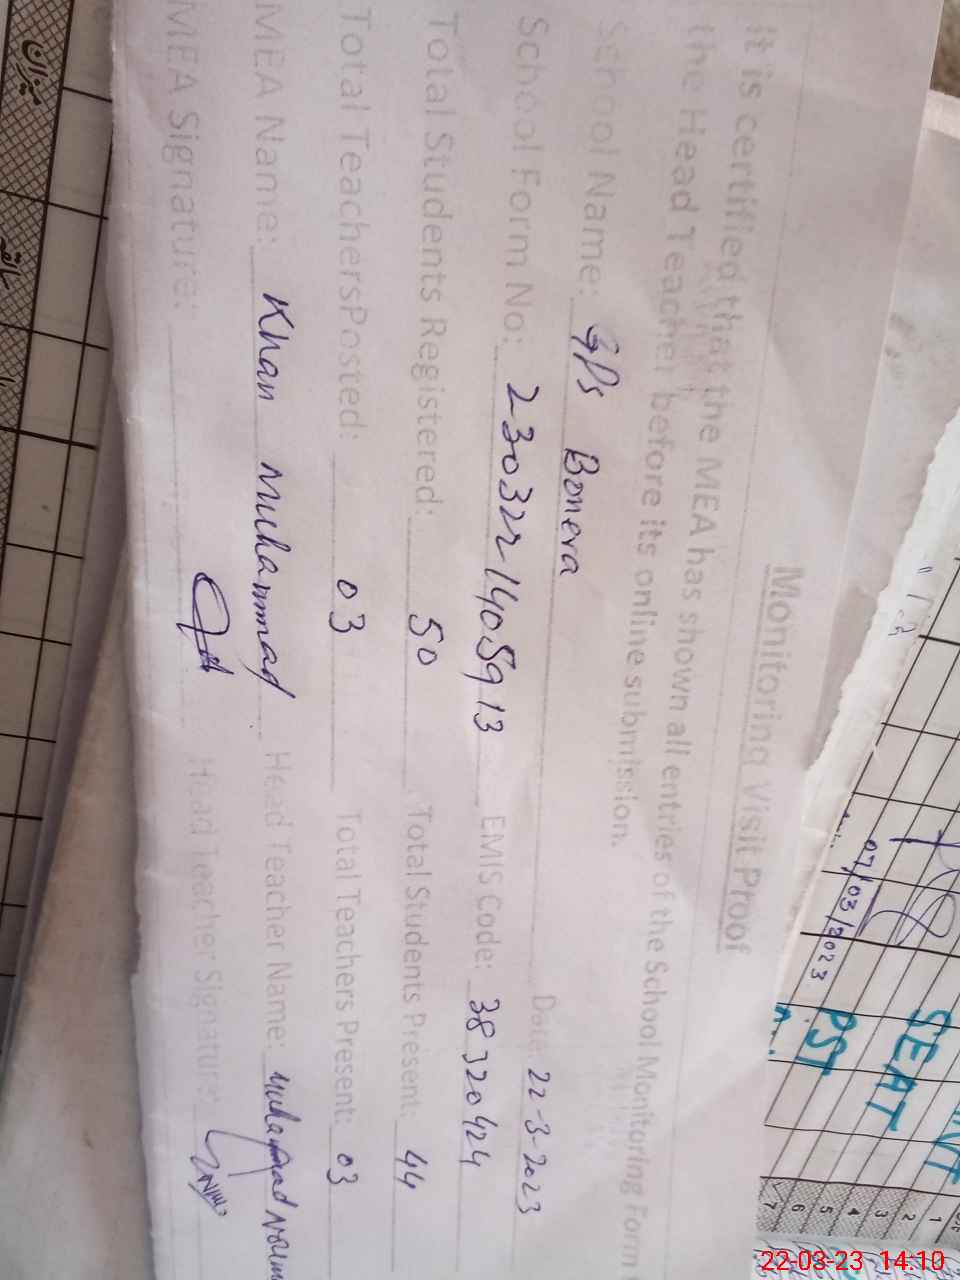 Monitoring Visit Proof
It is certified that the MEA has shown all entries of the School Monitoring Form
the Head Teacher before its online submission.
School Name: GPS Bonera Date: 22-3-2023
School Form No: 230322-1405913 EMIS Code: 38320424
Total Students Registered: 50 Total Students Present: 44
Total TeachersPosted: 03 Total Teachers Present: 03
MEA Name: Khan Muhammad Head Teacher Name: Muhammad
MEA Signature: Head Teacher Signature:
07/03/2023
SEAT
PST
1
2
3
4
5
6
7
میزان
22-03-23 14:10